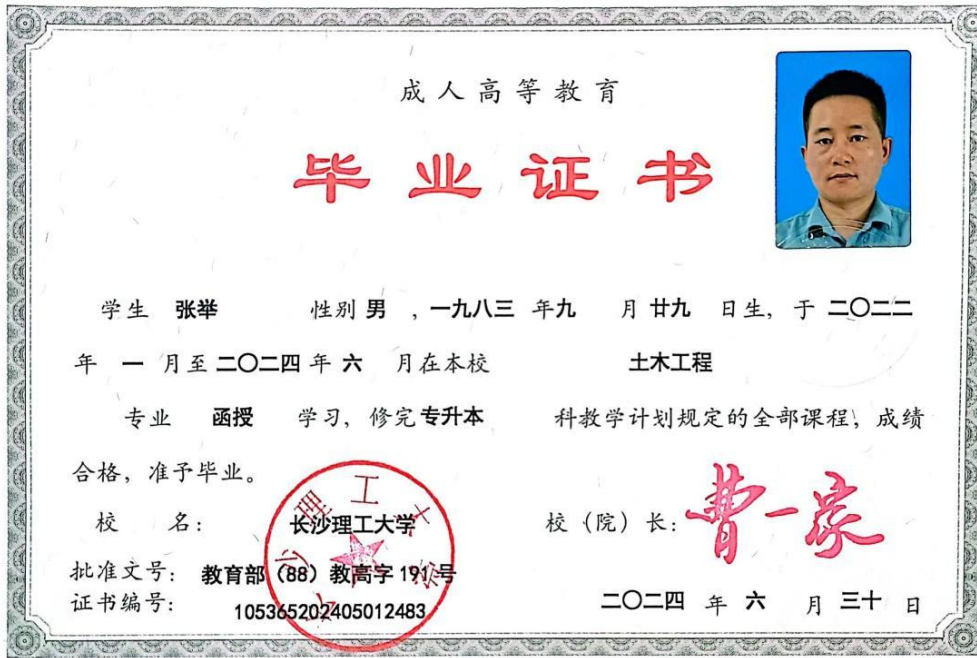 成人高等教育
毕业证书
学生 张举 性别 男 ,一九八三 年九 月 廿九 日生, 于 二〇二二
年 一 月至 二〇二四 年 六 月在本校 土木工程
专业 函授 学习, 修完 专升本 科教学计划规定的全部课程, 成绩
合格, 准予毕业。
校 名: 长沙理工大学
校(院)长: 曹一家
批准文号: 教育部(88)教高字 191 号
证书编号: 105365202405012483
二〇二四 年 六 月 三十 日
长沙理工大学